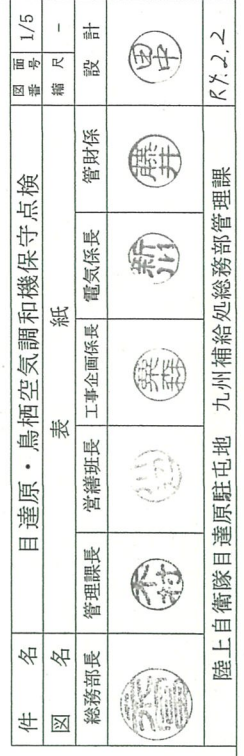 件名 目達原・鳥栖空気調和機保守点検 図面番号 1/5
図名 表紙 縮尺 -
総務部長 管理課長 営繕班長 工事企画係長 電気係長 管財係 設計
新川 藤井 田中
陸上自衛隊目達原駐屯地 九州補給処総務部管理課 R8.2.2